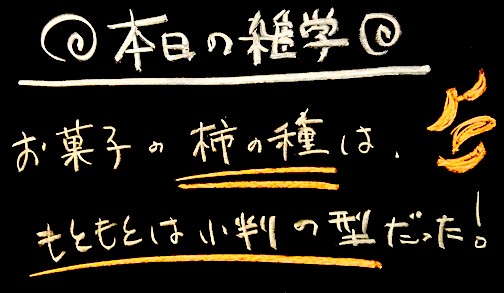 本日の雑学
お菓子の柿の種は、
もともとは小判の型だった!